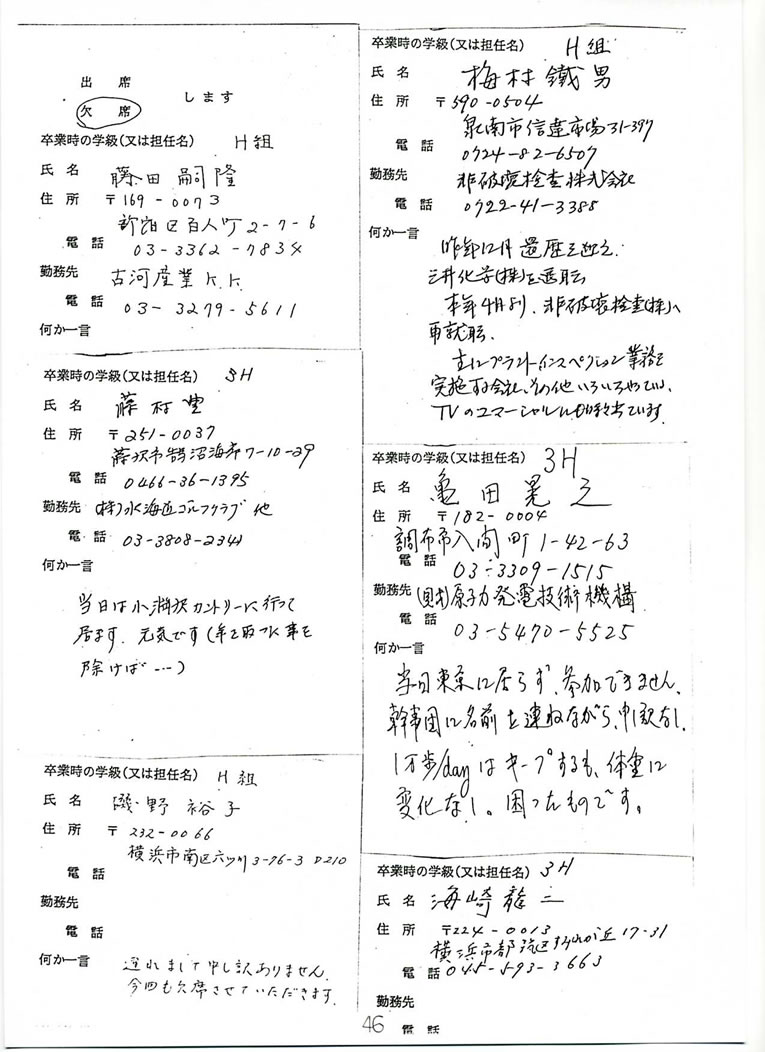 出席
欠席
します
卒業時の学級(又は担任名) H組
氏名 藤田嗣隆
住所 〒169-0073
新宿区百人町2-7-6
電話 03-3362-7834
勤務先 古河産業K.K.
電話 03-3279-5611
何か一言
卒業時の学級(又は担任名) 3H
氏名 藤村豊
住所 〒251-0037
藤沢市鵠沼海岸7-10-29
電話 0466-36-1395
勤務先 (株)水海道ゴルフクラブ 他
電話 03-3808-2341
何か一言
当日は小淵沢カントリーに行って
居ます。元気です(年を取った事を
除けば…)
卒業時の学級(又は担任名) H組
氏名 磯野裕子
住所 〒232-0066
横浜市南区六ツ川3-76-3 D210
電話
勤務先
電話
何か一言 遅れまして申し訳ありません。
今回も欠席させていただきます。
卒業時の学級(又は担任名) H組
氏名 梅村鐵男
住所 〒590-0504
泉南市信達市場31-397
電話 0724-82-6507
勤務先 非破壊検査株式会社
電話 0722-41-3388
何か一言
昨年12月還歴を迎え、
三井化学(株)を退職
本年4月より、非破壊検査(株)へ
再就職。
主にプラントインスペクション業務を
実施する会社、その他いろいろやっている、
TVのコマーシャルにも時々出ています。
卒業時の学級(又は担任名) 3H
氏名 亀田晃之
住所 〒182-0004
調布市入間町1-42-63
電話 03-3309-1515
勤務先 (財)原子力発電技術機構
電話 03-5470-5525
何か一言
当日東京に居らず、参加できません。
幹事団に名前を連ねながら、申訳なし。
1万歩/dayはキープするも、体重に
変化なし。困ったものです。
卒業時の学級(又は担任名) 3H
氏名 海崎龍二
住所 〒224-0013
横浜市都筑区すみれが丘17-31
電話 045-593-3663
勤務先
電話
46